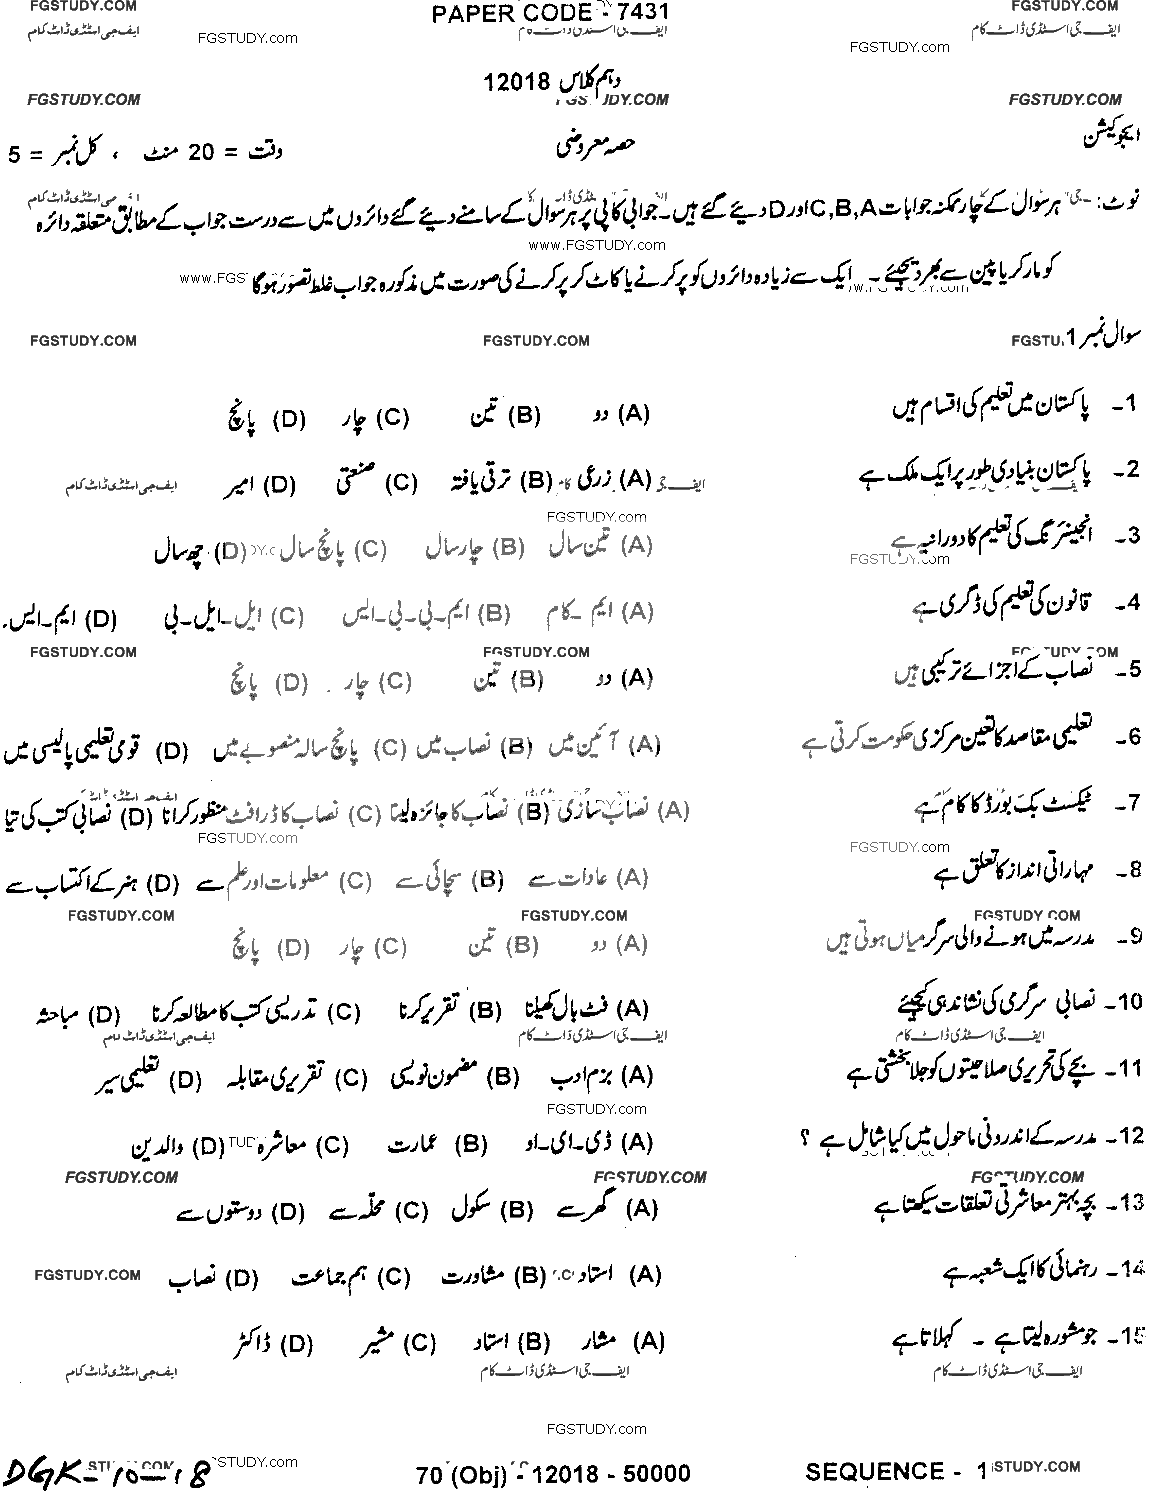 FGSTUDY.COM PAPER CODE - 7431 FGSTUDY.COM
ایف جی اسٹڈی ڈاٹ کام FGSTUDY.com ایف جی اسٹڈی ڈاٹ کام FGSTUDY.com ایف جی اسٹڈی ڈاٹ کام
دہم کلاس 12018
FGSTUDY.COM FGSTUDY.COM FGSTUDY.COM
ایجوکیشن حصہ معروضی وقت = 20 منٹ ، کل نمبر = 5
نوٹ:۔ ہر سوال کے چار ممکنہ جوابات C,B,A اور D دیئے گئے ہیں۔ جوابی کاپی پر ہر سوال کے سامنے دیئے گئے دائروں میں سے درست جواب کے مطابق متعلقہ دائرہ
www.FGSTUDY.com
کو مارکر یا پین سے بھر دیجیئے ۔ ایک سے زیادہ دائروں کو پر کرنے یا کاٹ کر پر کرنے کی صورت میں مذکورہ جواب غلط تصور ہوگا
سوال نمبر 1
FGSTUDY.COM FGSTUDY.COM
1۔ پاکستان میں تعلیم کی اقسام ہیں (A) دو (B) تین (C) چار (D) پانچ
2۔ پاکستان بنیادی طور پر ایک ملک ہے (A) زرعی (B) ترقی یافتہ (C) صنعتی (D) امیر
ایف جی اسٹڈی ڈاٹ کام
FGSTUDY.com
3۔ انجینئرنگ کی تعلیم کا دورانیہ ہے (A) تین سال (B) چار سال (C) پانچ سال (D) چھ سال
FGSTUDY.com
4۔ قانون کی تعلیم کی ڈگری ہے (A) ایم ۔کام (B) ایم۔بی۔بی۔ایس (C) ایل۔ایل۔بی (D) ایم۔ایس۔
FGSTUDY.COM FGSTUDY.COM
5۔ نصاب کے اجزائے ترکیبی ہیں (A) دو (B) تین (C) چار (D) پانچ
6۔ تعلیمی مقاصد کا تعین مرکزی حکومت کرتی ہے (A) آئین میں (B) نصاب میں (C) پانچ سالہ منصوبے میں (D) قومی تعلیمی پالیسی میں
7۔ ٹیکسٹ بک بورڈ کا کام ہے (A) نصاب سازی (B) نصاب کا جائزہ لینا (C) نصاب کا ڈرافٹ منظور کرانا (D) نصابی کتب کی تیا
FGSTUDY.com FGSTUDY.com
8۔ مہاراتی انداز کا تعلق ہے (A) عادات سے (B) سچائی سے (C) معلومات اور علم سے (D) ہنر کے اکتساب سے
FGSTUDY.COM FGSTUDY.COM FGSTUDY.COM
9۔ مدرسہ میں ہونے والی سرگرمیاں ہوتی ہیں (A) دو (B) تین (C) چار (D) پانچ
10۔ نصابی سرگرمی کی نشاندہی کیجیئے (A) فٹ بال کھیلنا (B) تقریر کرنا (C) تدریسی کتب کا مطالعہ کرنا (D) مباحثہ
ایف جی اسٹڈی ڈاٹ کام ایف جی اسٹڈی ڈاٹ کام ایف جی اسٹڈی ڈاٹ کام
11۔ بچے کی تحریری صلاحیتوں کو جلا بخشتی ہے (A) بزم ادب (B) مضمون نویسی (C) تقریری مقابلہ (D) تعلیمی سیر
FGSTUDY.com
12۔ مدرسہ کے اندرونی ماحول میں کیا شامل ہے ؟ (A) ڈی۔ای۔او (B) عمارت (C) معاشرہ (D) والدین
FGSTUDY.COM FGSTUDY.COM FGSTUDY.COM
13۔ بچہ بہتر معاشرتی تعلقات سیکھتا ہے (A) گھر سے (B) سکول (C) محلّہ سے (D) دوستوں سے
14۔ رہنمائی کا ایک شعبہ ہے (A) استاد (B) مشاورت (C) ہم جماعت (D) نصاب
FGSTUDY.COM
15۔ جو مشورہ لیتا ہے ۔ کہلاتا ہے (A) مشار (B) استاد (C) مشیر (D) ڈاکٹر
ایف جی اسٹڈی ڈاٹ کام ایف جی اسٹڈی ڈاٹ کام ایف جی اسٹڈی ڈاٹ کام
FGSTUDY.com
DGK-10-18 70 (Obj) - 12018 - 50000 SEQUENCE - 1